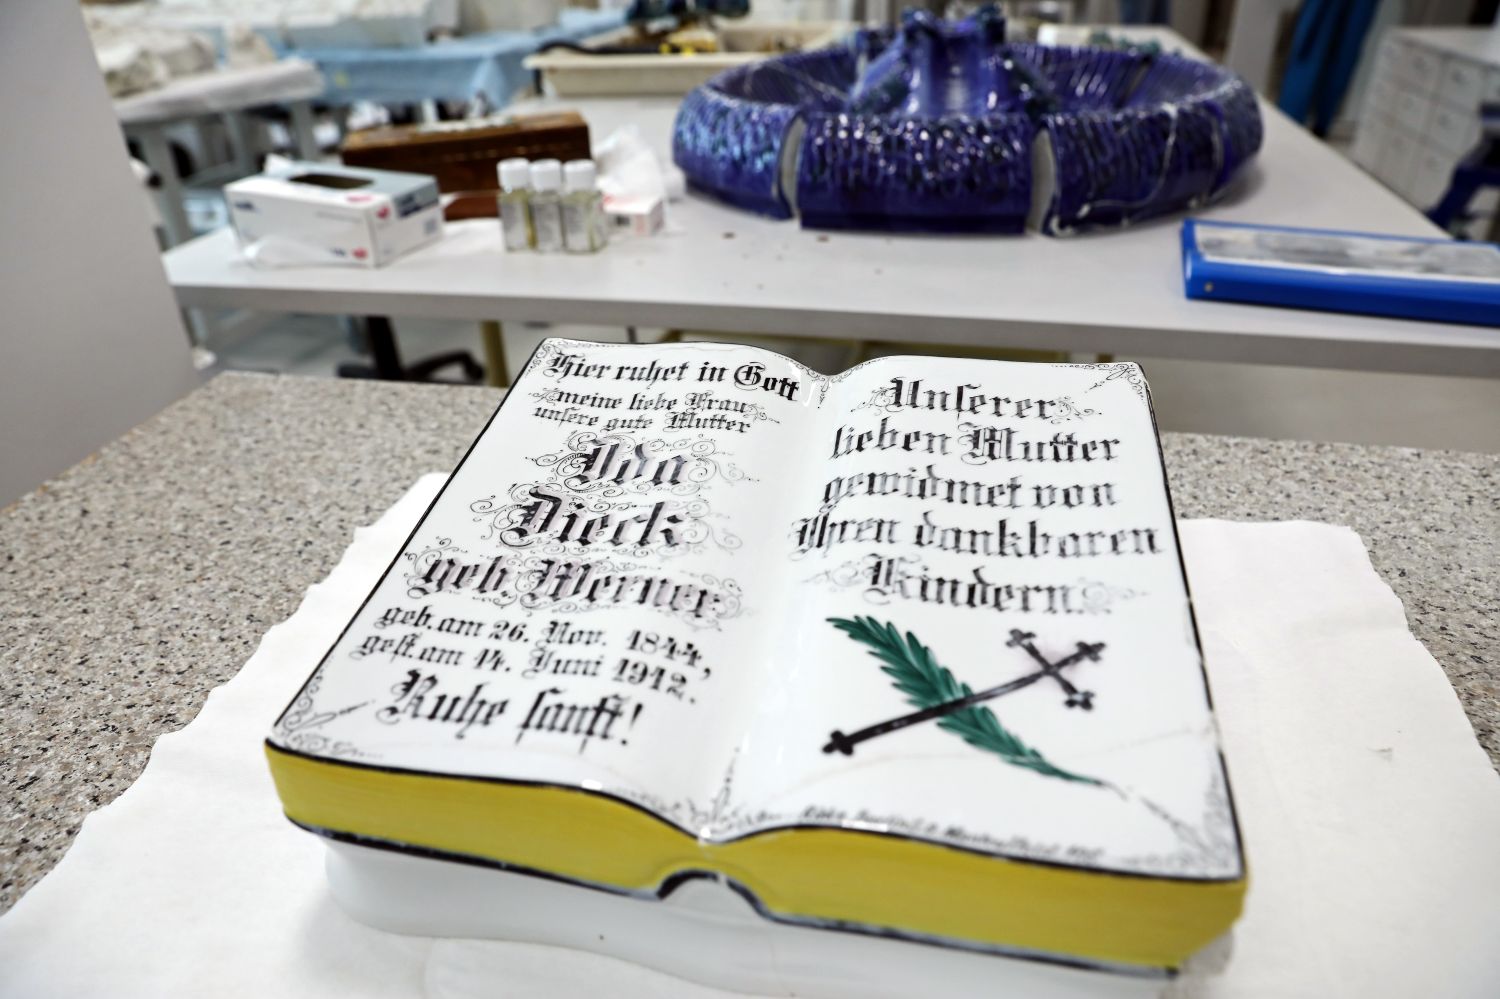 Hier ruhet in Gott
meine liebe Frau,
unsere gute Mutter
Ida
Dieck
geb. Werner
geb. am 26. Nov. 1844,
gest. am 14. Juni 1912.
Ruhe sanft!
Unserer
lieben Mutter
gewidmet von
Ihren dankbaren
Kindern.